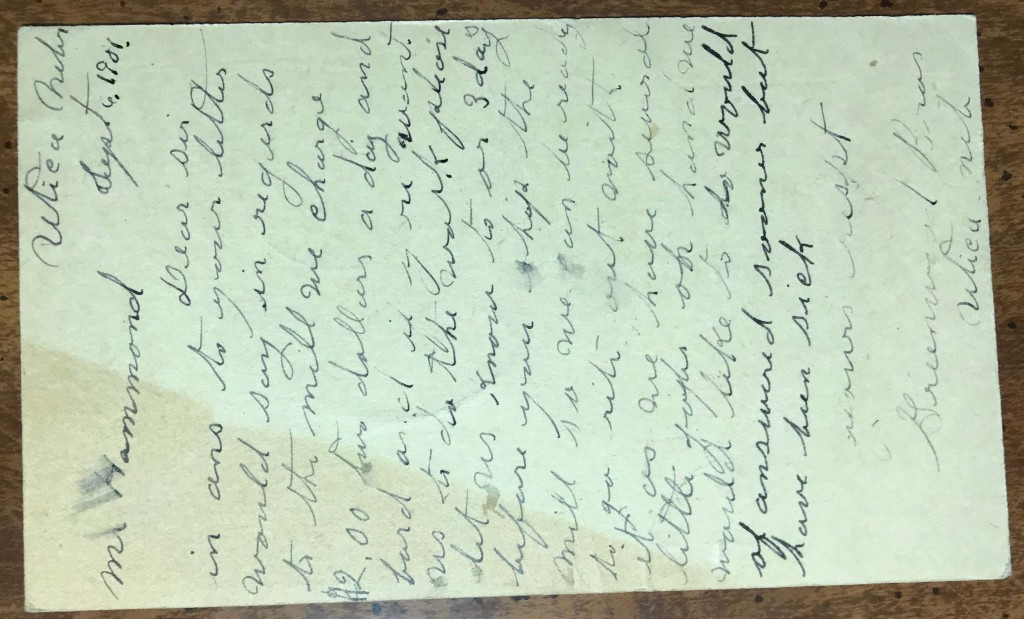 Utica Nebr
Sept 6, 1901.
Mr Hammond
Dear sir
in ans to your letter
would say in regards
to the mill we charge
$2.00 two dollars a day and
bord as if y re want
us to do the work please
let us know to or 3 days
before you ship the
mill so we can be ready
to go rite out with
it as we have several
little jobs on hand we
would like to do would
of answered sooner but
have been sick
yours respt
Greenwood Bros
Utica Neb